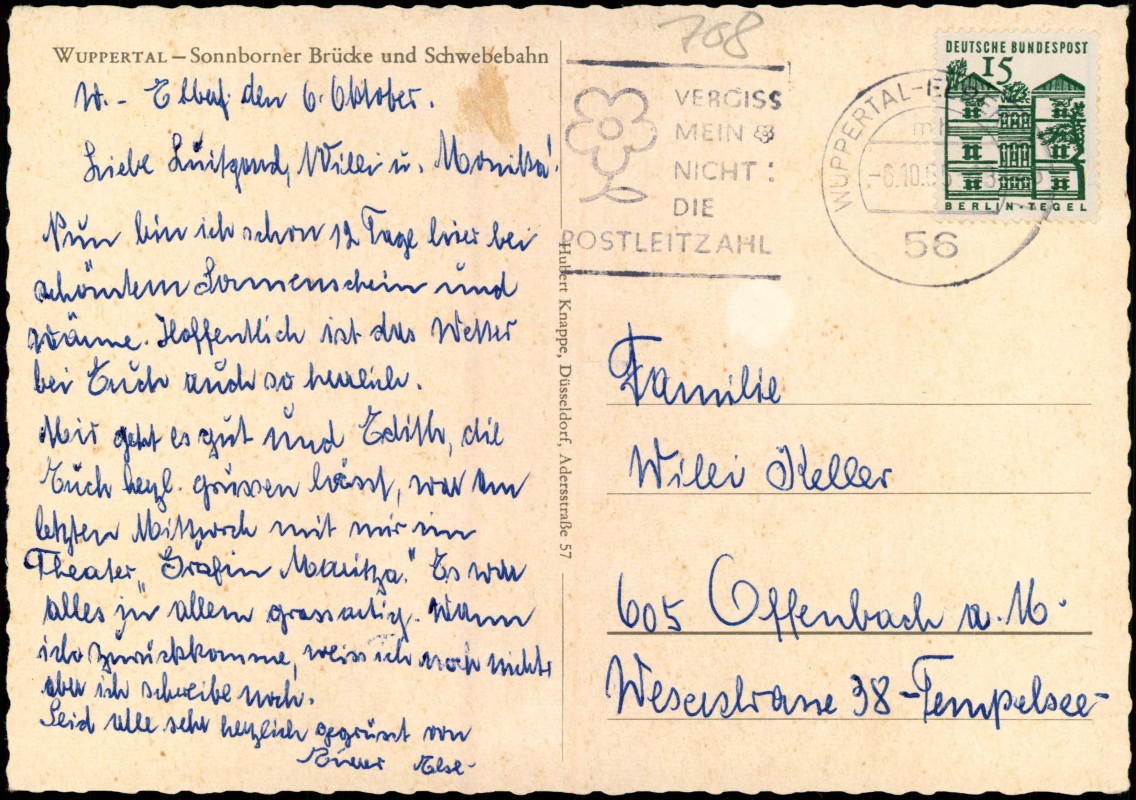 708
WUPPERTAL – Sonnborner Brücke und Schwebebahn
W. - Elbf. den 6. Oktober.
Liebe Luitgard, Willi u. Monika!
Nun bin ich schon 12 Tage hier bei
schönstem Sonnenschein und
Wärme. Hoffentlich ist das Wetter
bei Euch auch so herrlich.
Mir geht es gut und Edith, die
Euch herzl. grüssen lässt, war am
letzten Mittwoch mit mir im
Theater, "Gräfin Maritza." Es war
alles in allem grossartig. Wann
ich zurückkomme, weiss ich noch nicht,
aber ich schreibe noch.
Seid alle sehr herzlich gegrüsst von
Eurer Else.
Hubert Knappe, Düsseldorf, Adersstraße 57
VERGISS
MEIN
NICHT:
DIE
POSTLEITZAHL
WUPPERTAL-ELBE
-6.10.65
56
DEUTSCHE BUNDESPOST
15
BERLIN-TEGEL
Familie
Willi Keller
605 Offenbach a. M.
Weserstrasse 38 - Tempelsee -